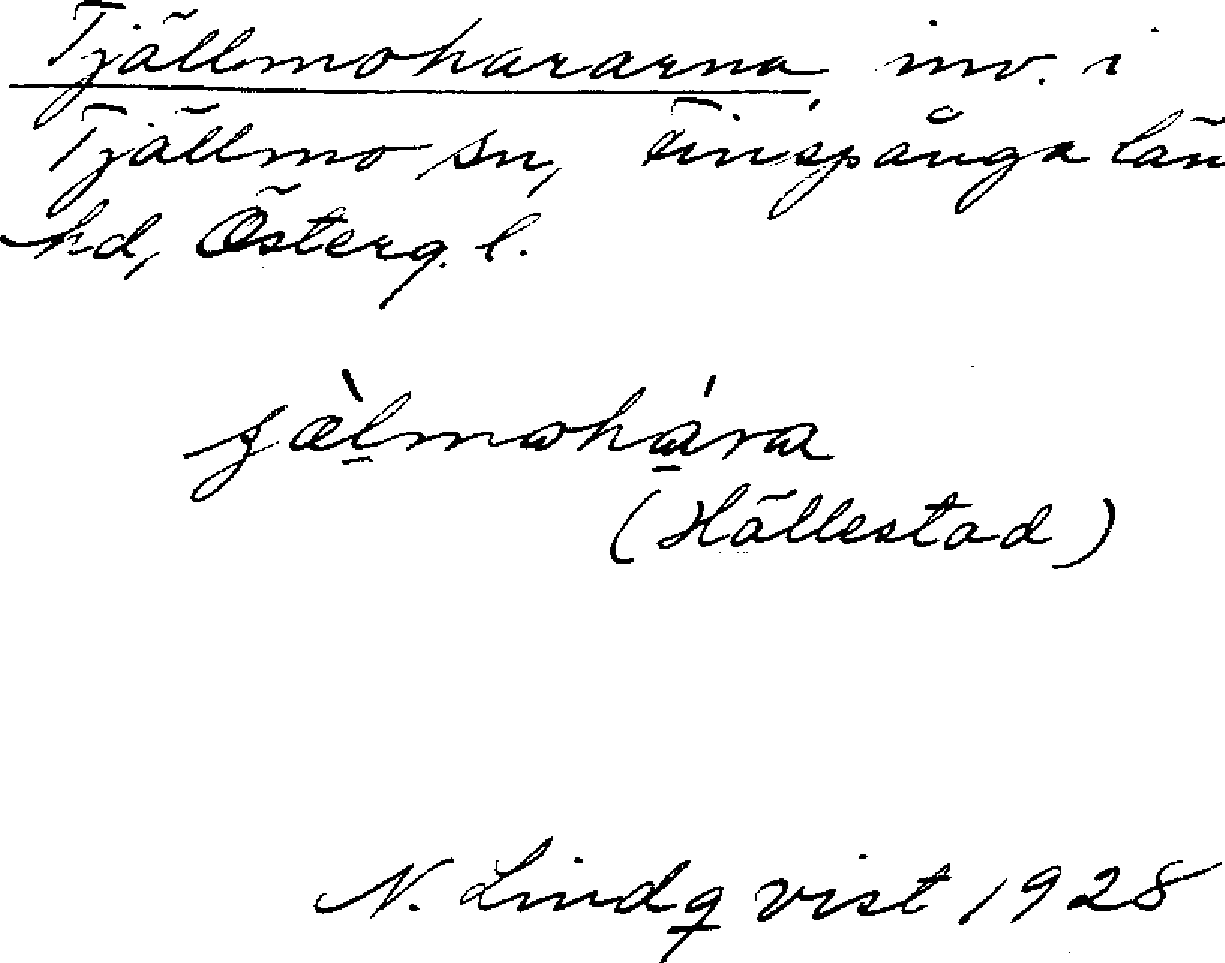 Tjällmohararna inv. i
Tjällmo sn, Finspånga län
hd, Österg. l.
(Hällestad)
N. Lindqvist 1928